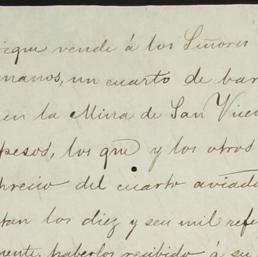 rique vende á los Señores
manos, un cuarto de bar
en la Mina de San Vicen
pesos, los qm̃ y los otros
precio del cuarto aviado
tan los diez y seis mil refe
mente haberlos recibido á su